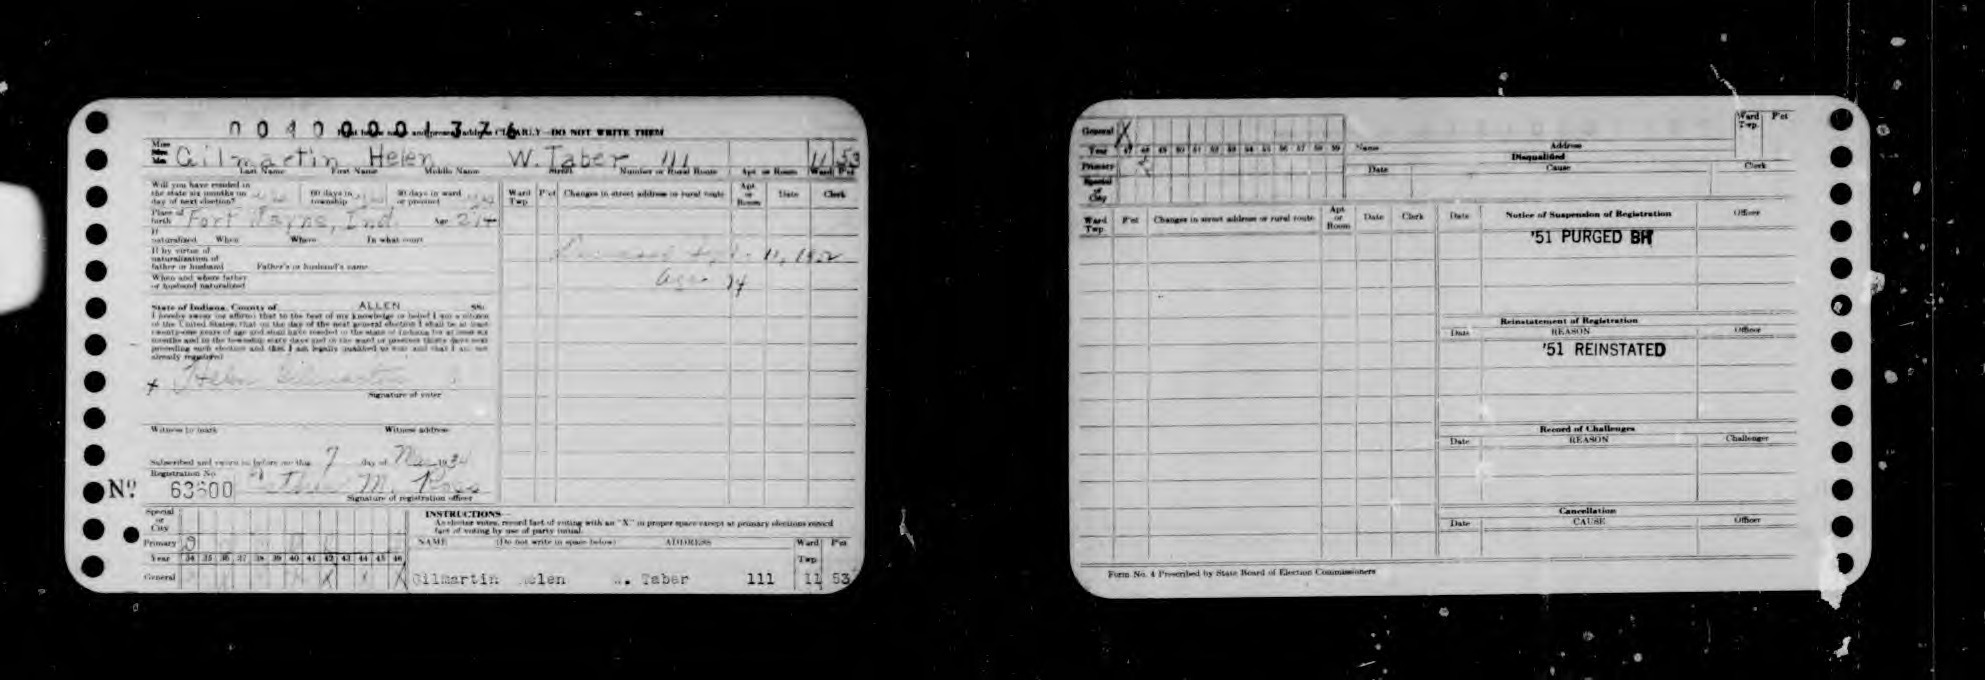 00400001376
CLEARLY—DO NOT WRITE THEM
Miss
Gilmartin Helen W. Taber 111 11 53
Last Name First Name Middle Name Street Number or Rural Route Apt or Room Ward P'ct
Will you have resided in
the state six months on
day of next election?
60 days in
township
30 days in ward
or precinct
Place of
birth Fort Wayne, Ind Age
If
naturalized When Where In what court
If by virtue of
naturalization of
father or husband Father's or husband's name
When and where father
or husband naturalized
State of Indiana, County of ALLEN ss:
I hereby swear (or affirm) that to the best of my knowledge or belief I am a citizen
of the United States, that on the day of the next general election I shall be at least
twenty-one years of age and shall have resided in the state of Indiana for at least six
months and in the township sixty days and in the ward or precinct thirty days next
preceding such election and that I am legally qualified to vote and that I am not
already registered
x Helen Gilmartin
Signature of voter
Witness to mark Witness address
Subscribed and sworn to before me this 7 day of Mar 1934
Registration No.
No. 63600 M. Ross
Signature of registration officer
Ward
Twp
P'ct
Changes in street address or rural route
Apt
or
Room
Date
Clerk
Deceased 11, 1952
age 74
Special
or
City
Primary D
Year 34 35 36 37 38 39 40 41 42 43 44 45 46
General X X X
INSTRUCTIONS—
As elector votes, record fact of voting with an "X" in proper space except at primary elections record
fact of voting by use of party initial.
NAME (Do not write in space below) ADDRESS Ward Twp P'ct
Gilmartin Helen W. Taber 111 11 53
General X
Year 47 48 49 50 51 52 53 54 55 56 57 58 59
Primary
Special
or
City
Name Address
Ward
Twp.
P'ct
Disqualified
Date Cause Clerk
Ward
Twp.
P'ct
Changes in street address or rural route
Apt
or
Room
Date
Clerk
Date Notice of Suspension of Registration Officer
'51 PURGED BH
Reinstatement of Registration
Date REASON Officer
'51 REINSTATED
Record of Challenges
Date REASON Challenger
Cancellation
Date CAUSE Officer
Form No. 4 Prescribed by State Board of Election Commissioners